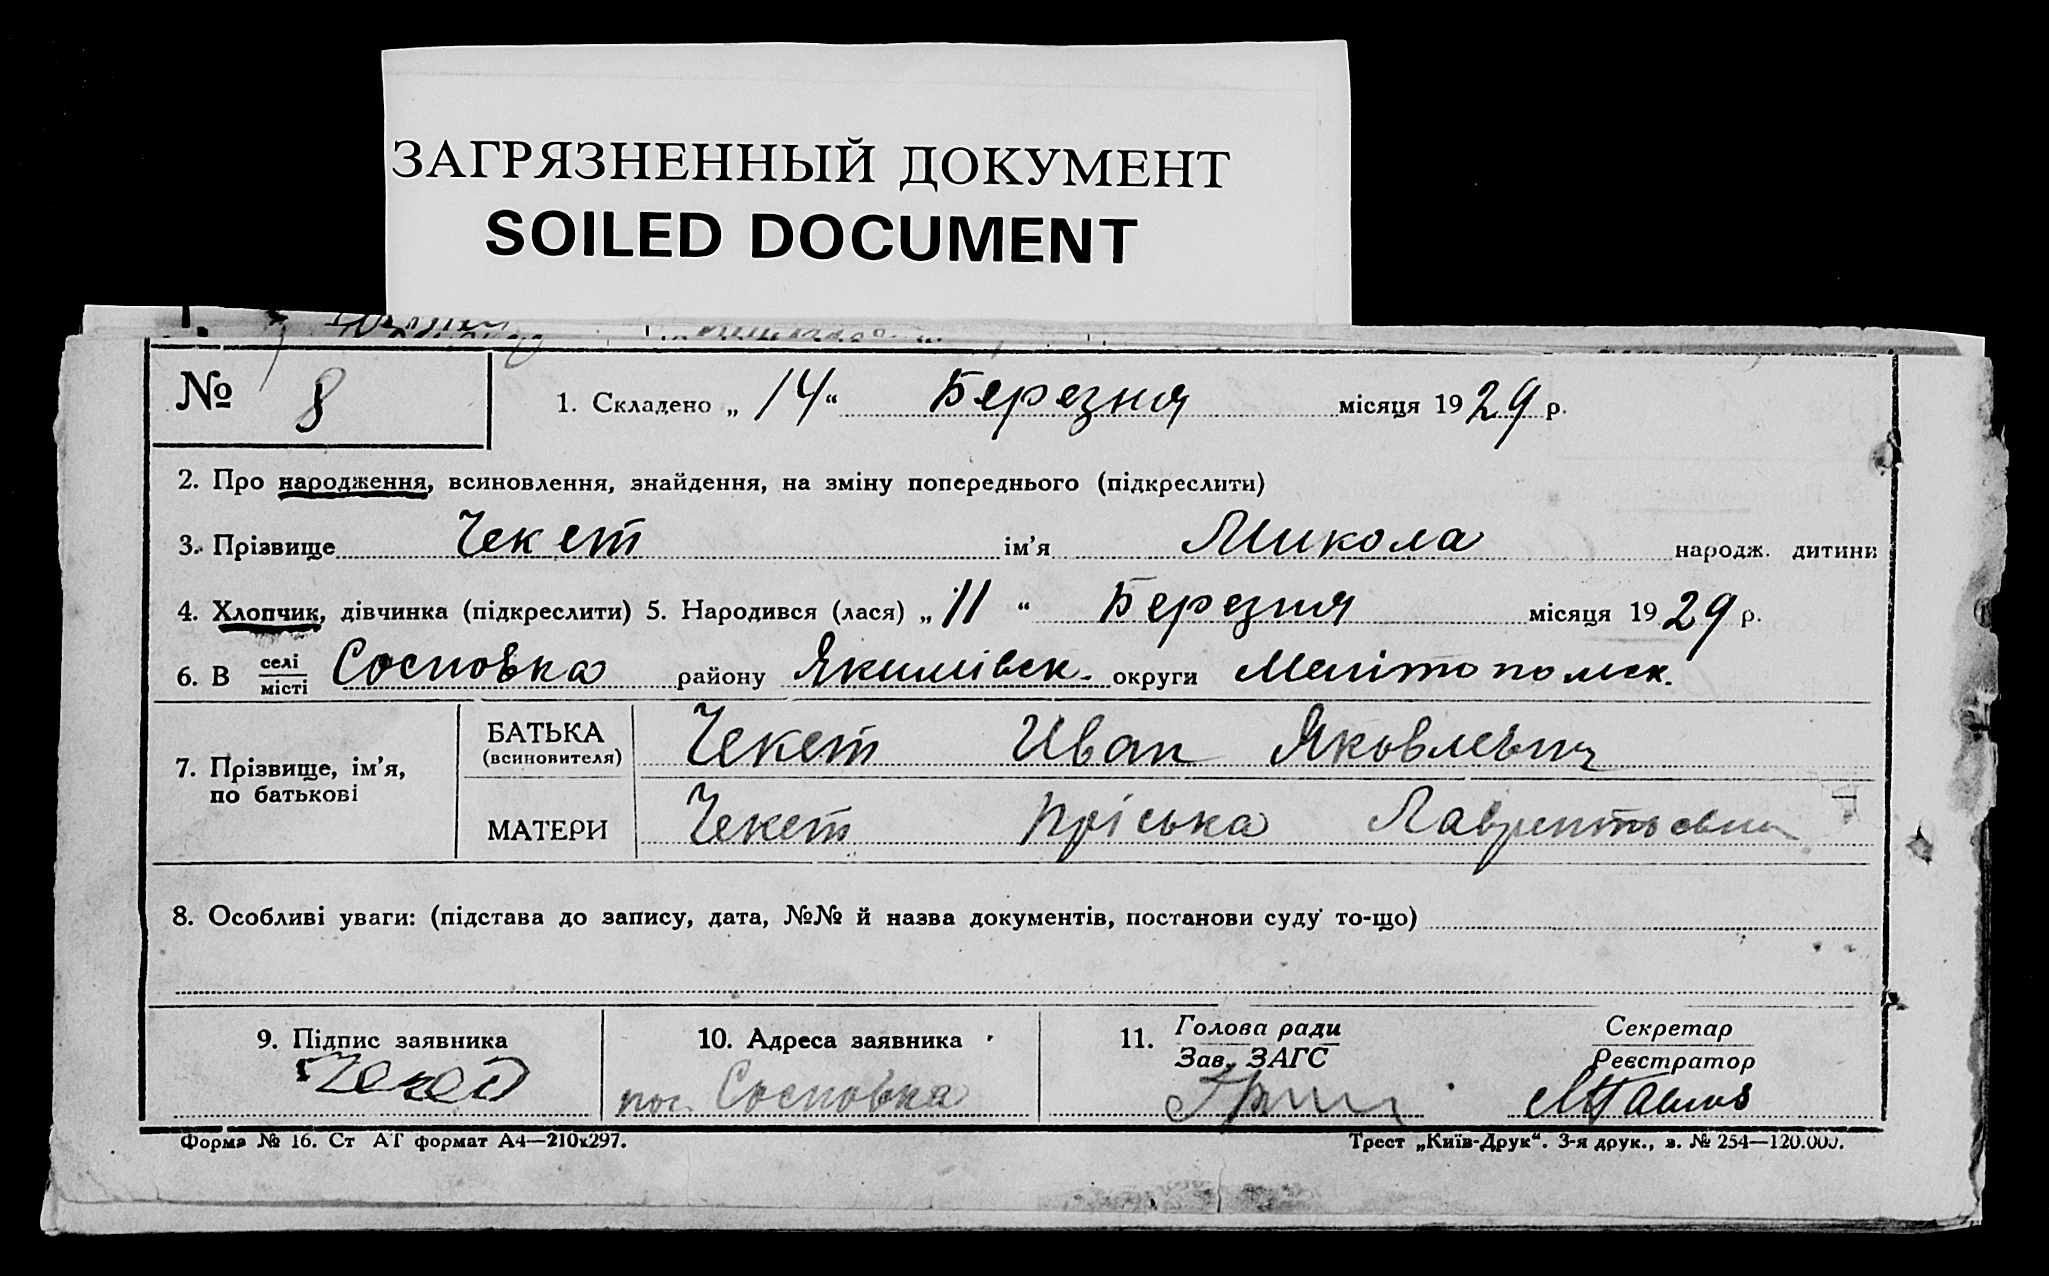 ЗАГРЯЗНЕННЫЙ ДОКУМЕНТ
SOILED DOCUMENT
№ 8
1. Складено „ 14 “ Березня місяця 1929 р.
2. Про народження, всиновлення, знайдення, на зміну попереднього (підкреслити)
3. Прізвище Чекет ім’я Микола народж. дитини
4. Хлопчик, дівчинка (підкреслити) 5. Народився (лася) „ 11 “ Березня місяця 1929 р.
6. В селі місті Сосновка району Якимівськ. округи Мелітопольськ.
7. Прізвище, ім’я, по батькові
БАТЬКА (всиновителя) Чекет Иван Яковлевич
МАТЕРИ Чекет Пріська Лаврентьевна
8. Особливі уваги: (підстава до запису, дата, №№ й назва документів, постанови суду то-що)
9. Підпис заявника
Чекет
10. Адреса заявника
пос. Сосновка
11. Голова ради
Зав. ЗАГС
Секретар
Реєстратор
Форма № 16. Ст АТ формат А4—210х297.
Трест „Київ-Друк“. 3-я друк., з. № 254—120.000.